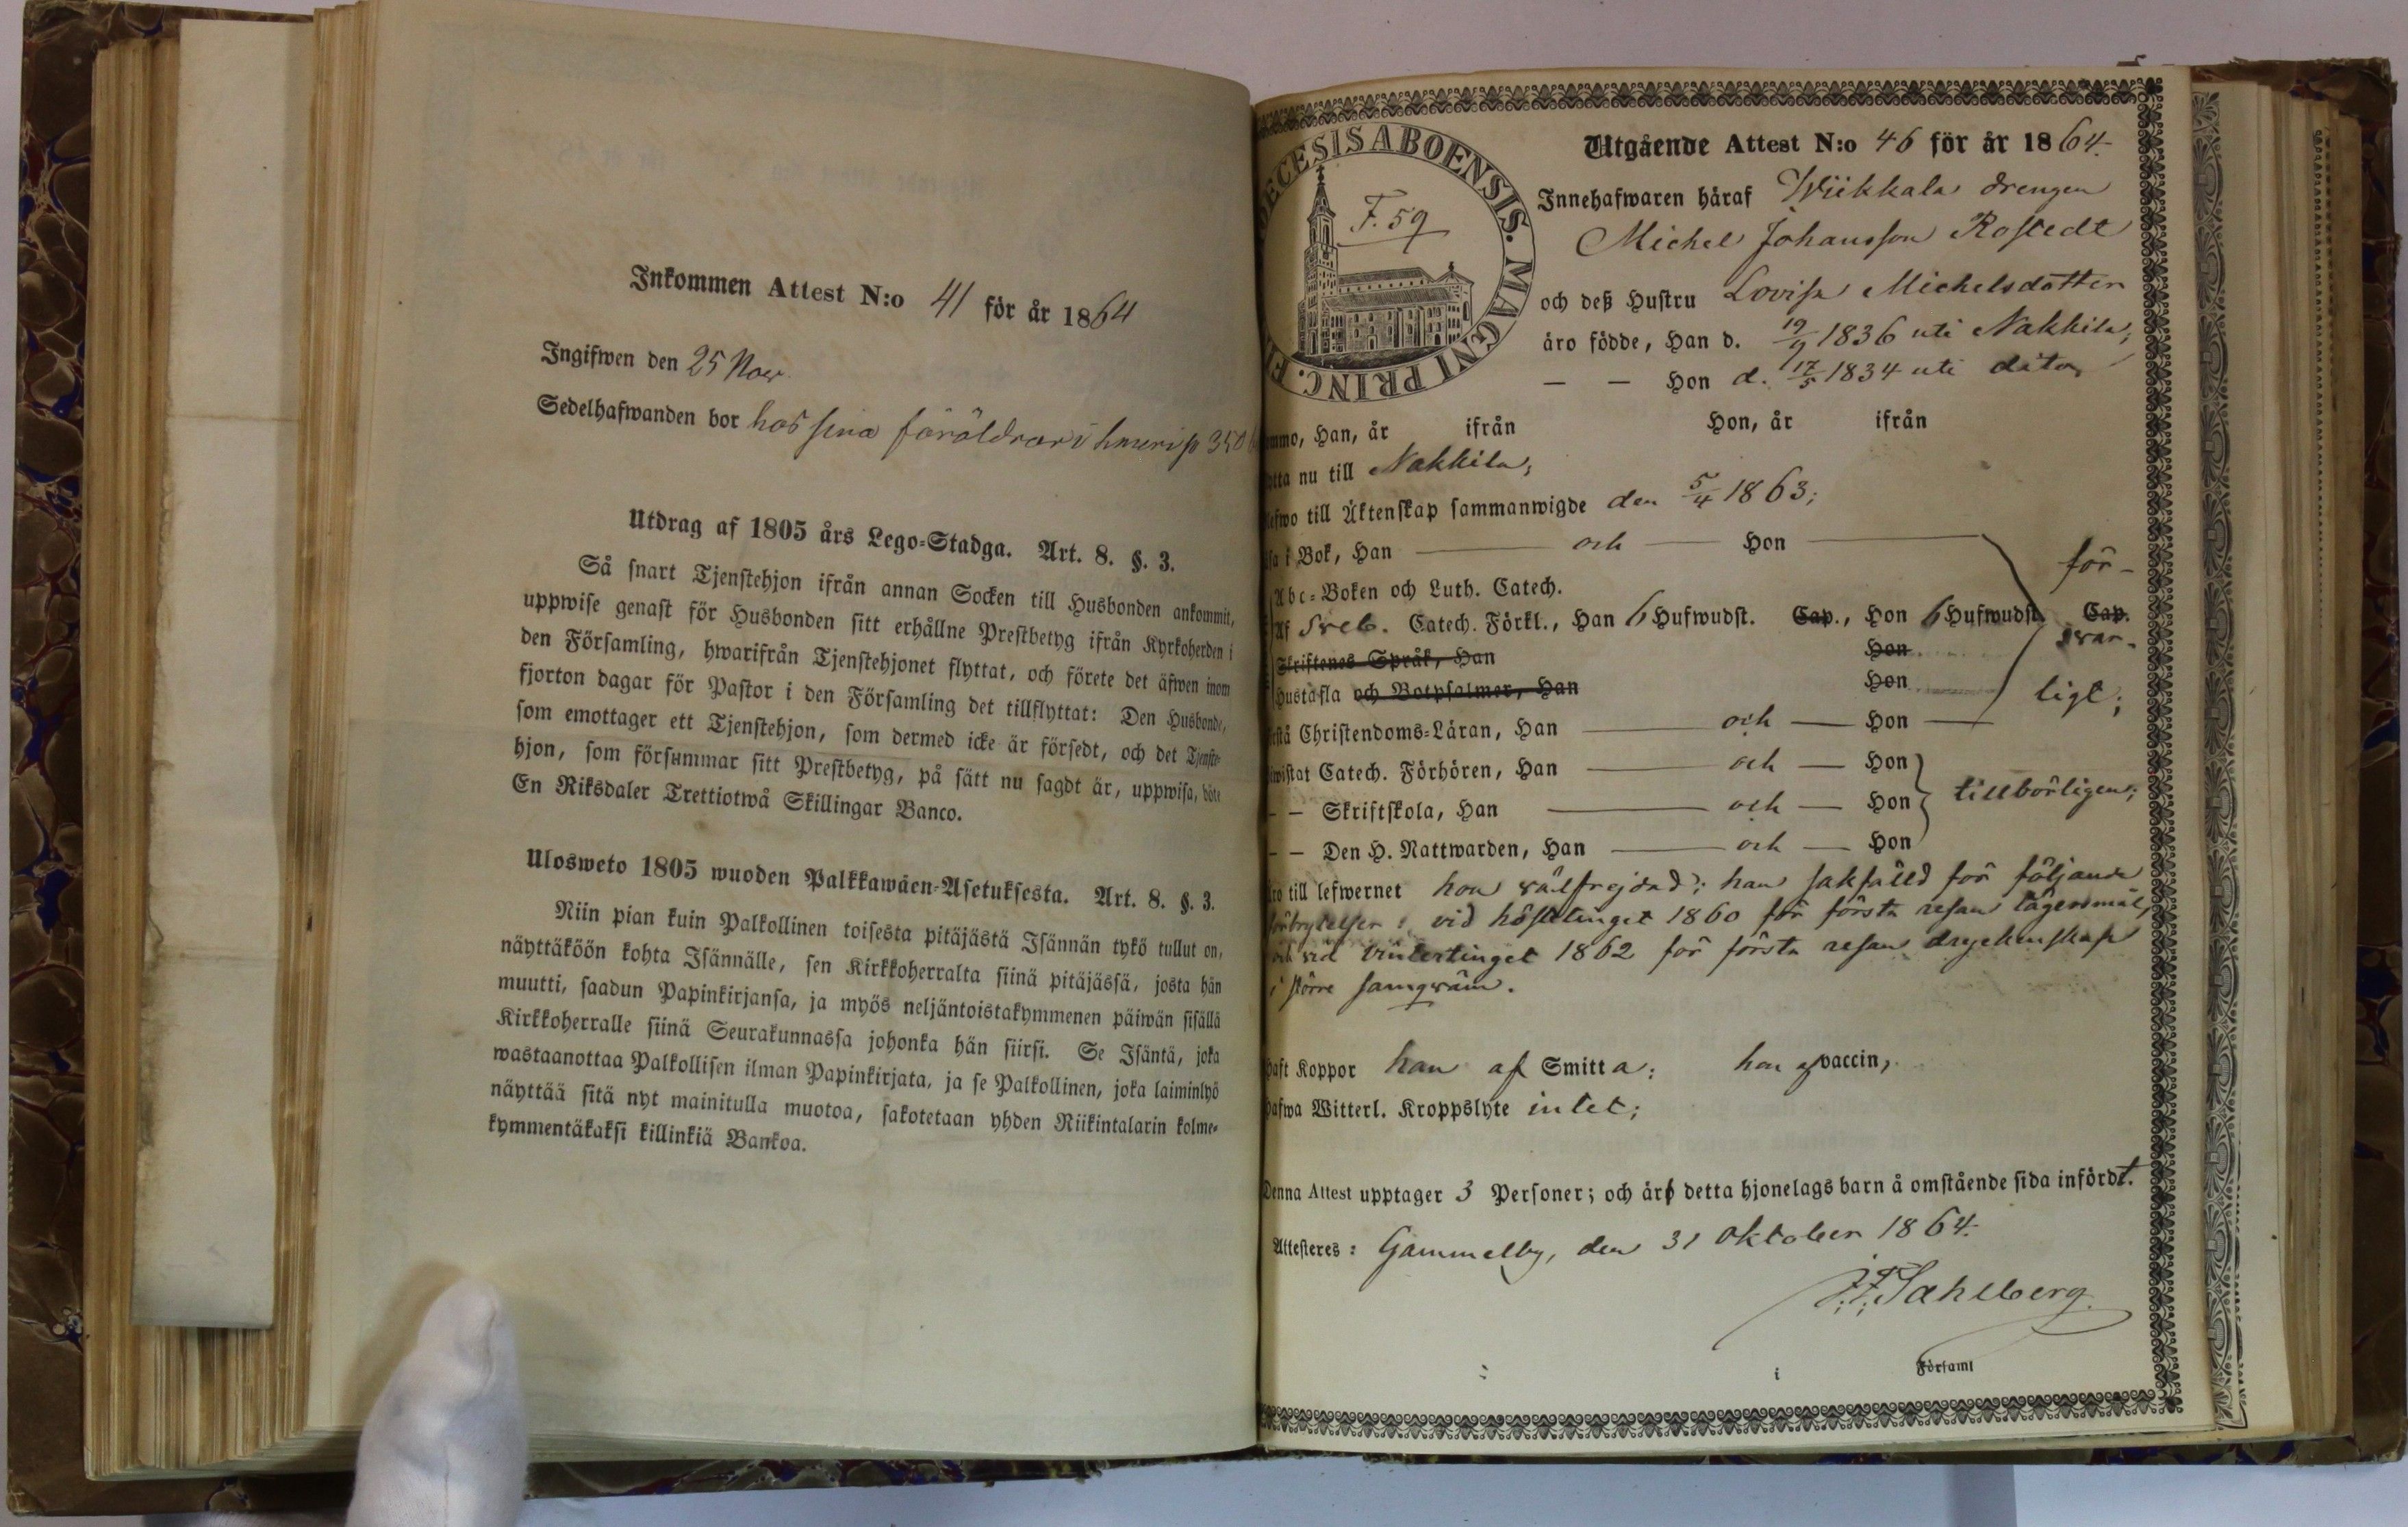 Inkommen Attest N:o 41 för år 1864
Ingifwen den 25 Nov.
Sedelhafwanden bor hos sina föräldrar i
Utdrag af 1805 års Lego-Stadga. Art. 8. §. 3.
Så snart Tjenstehjon ifrån annan Socken till Husbonden ankommit,
uppwise genast för Husbonden sitt erhållne Prestbetyg ifrån Kyrkoherden i
den Församling, hwarifrån Tjenstehjonet flyttat, och förete det äfwen inom
fjorton dagar för Pastor i den Församling det tillflyttat: Den Husbonde,
som emottager ett Tjenstehjon, som dermed icke är försedt, och det Tjenste-
hjon, som försummar sitt Prestbetyg, på sätt nu sagdt är, uppwisa, böte
En Riksdaler Trettiotwå Skillingar Banco.
Ulosweto 1805 wuoden Palkkawäen-Asetuksesta. Art. 8. §. 3.
Niin pian kuin Palkollinen toisesta pitäjästä Isännän tykö tullut on,
näyttäköön kohta Isännälle, sen Kirkkoherralta siinä pitäjässä, josta hän
muutti, saadun Papinkirjansa, ja myös neljäntoistakymmenen päiwän sisällä
Kirkkoherralle siinä Seurakunnassa johonka hän siirsi. Se Isäntä, joka
wastaanottaa Palkollisen ilman Papinkirjata, ja se Palkollinen, joka laiminlyö
näyttää sitä nyt mainitulla muotoa, sakotetaan yhden Riikintalarin kolme-
kymmentäkaksi killinkiä Bankoa.
ECESIS ABOENSIS. MAGNI PRINC. FI
F. 59
Utgående Attest N:o 46 för år 1864.
Innehafwaren häraf Wiikkala drengen
Michel Johansson Rostedt
och deß Hustru Lovisa Michelsdotter
äro födde, Han d. 19/9 1836 uti Nakkila;
— — Hon d. 17/5 1834 uti dito,
ommo, Han, år ifrån Hon, år ifrån
ytta nu till Nakkila;
lefwo till Äktenskap sammanwigde den 5/4 1863;
äsa i Bok, Han — och — Hon — för-
Abc-Boken och Luth. Catech.
Af Sveb. Catech. Förkl., Han 6 Hufwudst. Cap., Hon 6 Hufwudst. Cap.
Skriftenes Språk, Han Hon svar-
Hustafla och Botpsalmer, Han Hon ligt;
rstå Christendoms-Läran, Han — och — Hon —
wistat Catech. Förhören, Han — och — Hon
— — Skriftskola, Han — och — Hon tillbörligen;
— — Den H. Nattwarden, Han — och — Hon
äro till lefwernet hon välfrejdad; han sakfälld för följande
förbrytelser: vid hösttinget 1860 för första resan lägersmål,
och vid vintertinget 1862 för första resan dryckenskap
i större samqväm.
haft Koppor han af Smitta; hon af vaccin,
hafwa Witterl. Kroppslyte intet;
Denna Attest upptager 3 Personer; och äro detta hjonelags barn å omstående sida infördt.
Attesteres: Gammelby, den 31 Oktober 1864.
J. F. Sahlberg.
i Församl